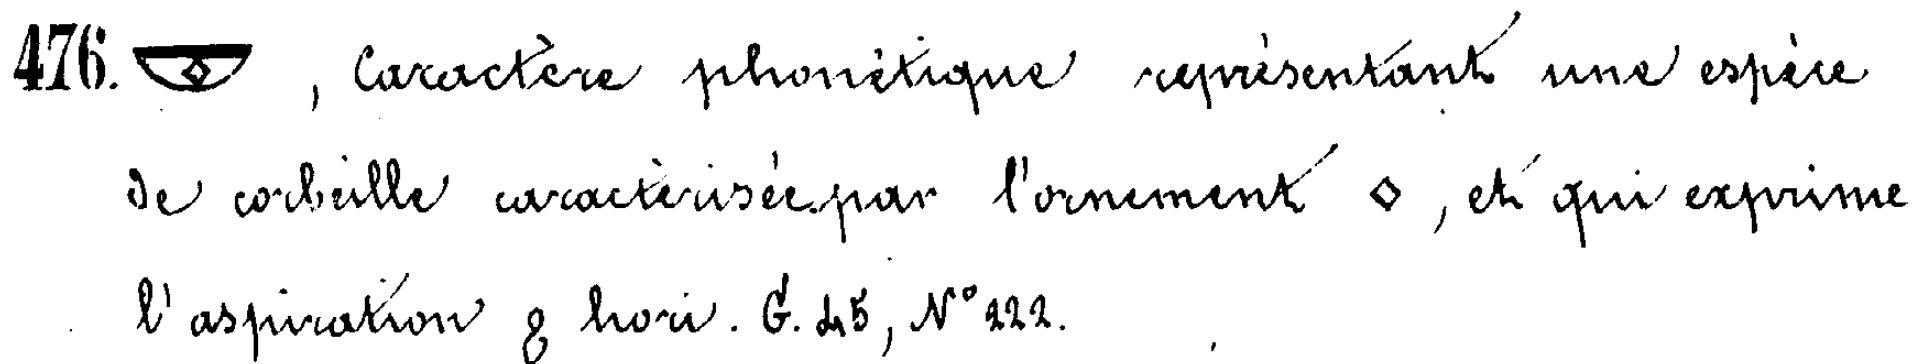 476. 𓎱, Caractère phonétique représentant une espèce
de corbeille caractérisée par l'ornement ◇, et qui exprime
l'aspiration ϩ hori. G. 45, N° 222.